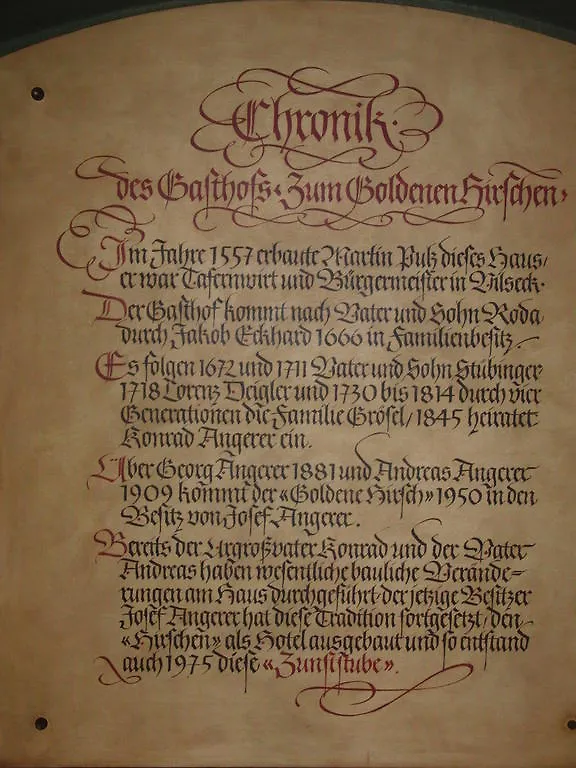 Chronik.
des Gasthofs «Zum Goldenen Hirschen»
Im Jahre 1557 erbaute Martin Pulz dieses Haus,
er war Tafernwirt und Bürgermeister in Vilseck.
Der Gasthof kommt nach Vater und Sohn Roda,
durch Jakob Eckhard 1666 in Familienbesitz.
Es folgen 1672 und 1711 Vater und Sohn Stübinger
1718 Lorenz Deigler und 1730 bis 1814 durch vier
Generationen die Familie Grösel, 1845 heiratet
Konrad Angerer ein.
Über Georg Angerer 1881 und Andreas Angerer
1909 kommt der «Goldene Hirsch» 1950 in den
Besitz von Josef Angerer.
Bereits der Urgroßvater Konrad und der Vater
Andreas haben wesentliche bauliche Verände=
rungen am Haus durchgeführt, der jetzige Besitzer
Josef Angerer hat diese Tradition fortgesetzt, den
«Hirschen» als Hotel ausgebaut und so entstand
auch 1975 diese «Zunftstube».